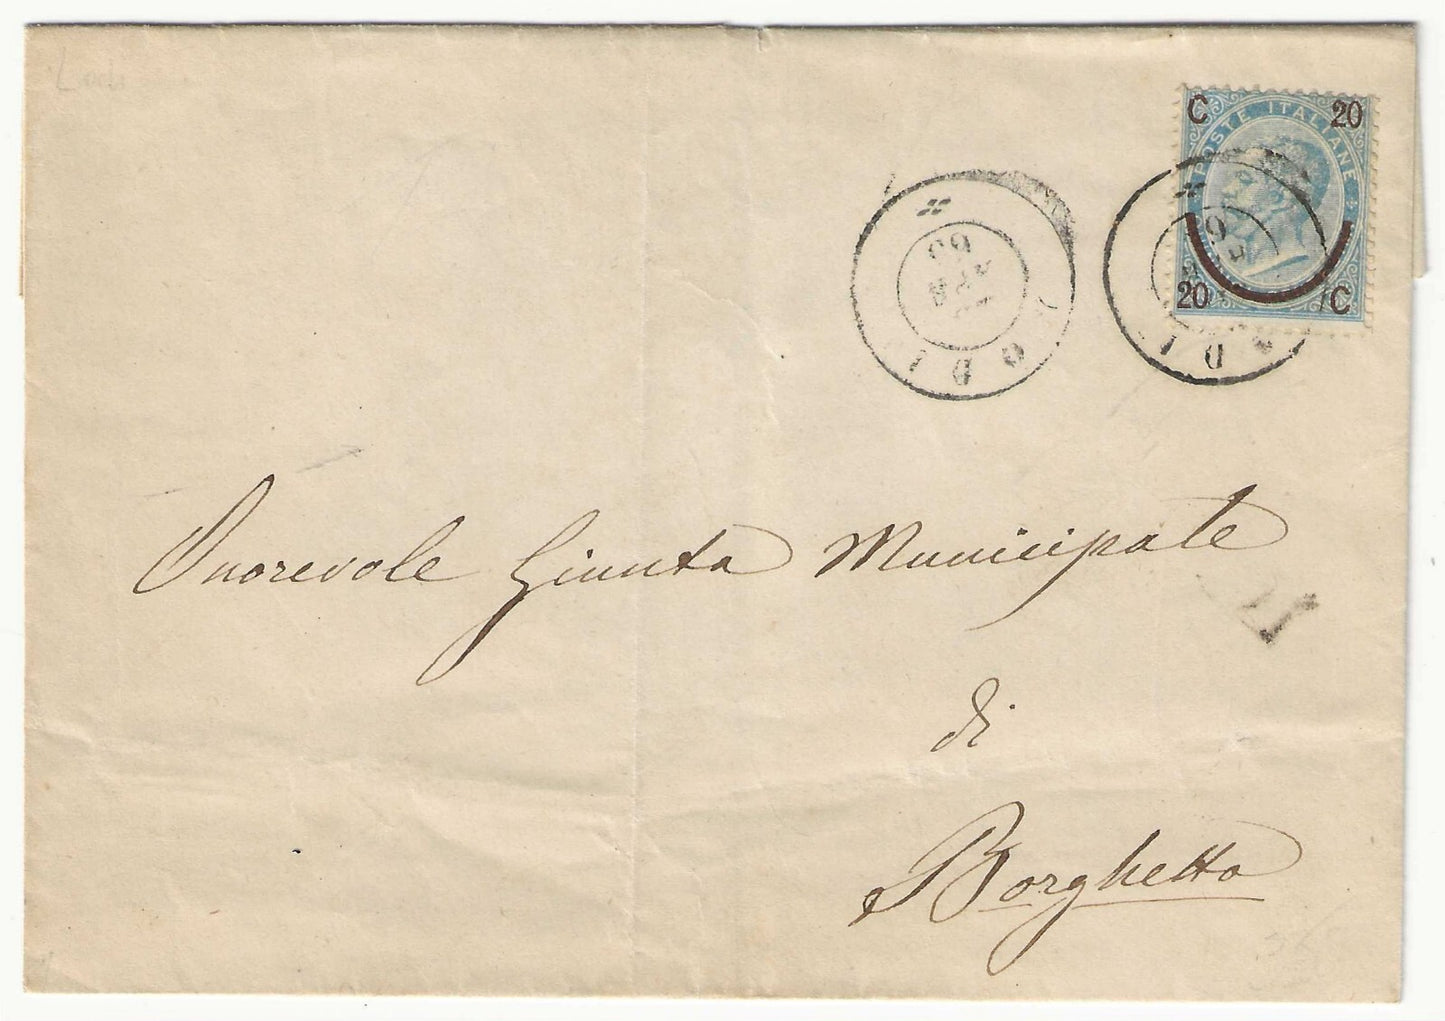 Lodi
C 20
POSTE ITALIANE
20 C
LODI
LODI
Onorevole Giunta Municipale
di
Borghetto